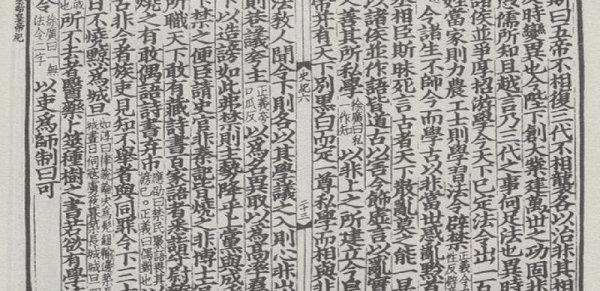 斯曰五帝不相復三代不相襲各以治非其相
反時變異也今陛下創大業建萬世之功固非
愚儒所知且越言乃三代之事何足法也異時
諸侯並爭厚招游學今天下已定法令出一百
姓當家則力農工士則學習法令辟禁
今諸生不師今而學古以非當世惑亂黔首
丞相臣斯昧死言古者天下散亂莫之能一是
以諸侯並作語皆道古以害今飾虛言以亂實
人善其所私學徐廣曰私一作知以非上之所建立今皇
史紀六 二十三
天下別黑白而定一尊私學而相與非
法教人聞令下則各以其學議之入則心非出
則巷議夸主以為名異取以為高率羣
下以造謗如此弗禁則主勢降乎上黨與成乎
下禁之便臣請史官非秦記皆燒之非博士官
所職天下敢有藏詩書百家語者悉詣守尉雜
燒之有敢偶語詩書弃市應劭曰禁民聚語畏其謗已正義曰偶對也
以古非今者族吏見知不舉者與同罪令下三十
日不燒黥為城旦
所不去者醫藥卜筮種樹之書若欲有學
法令徐廣曰一無法令二字以吏為師制曰可